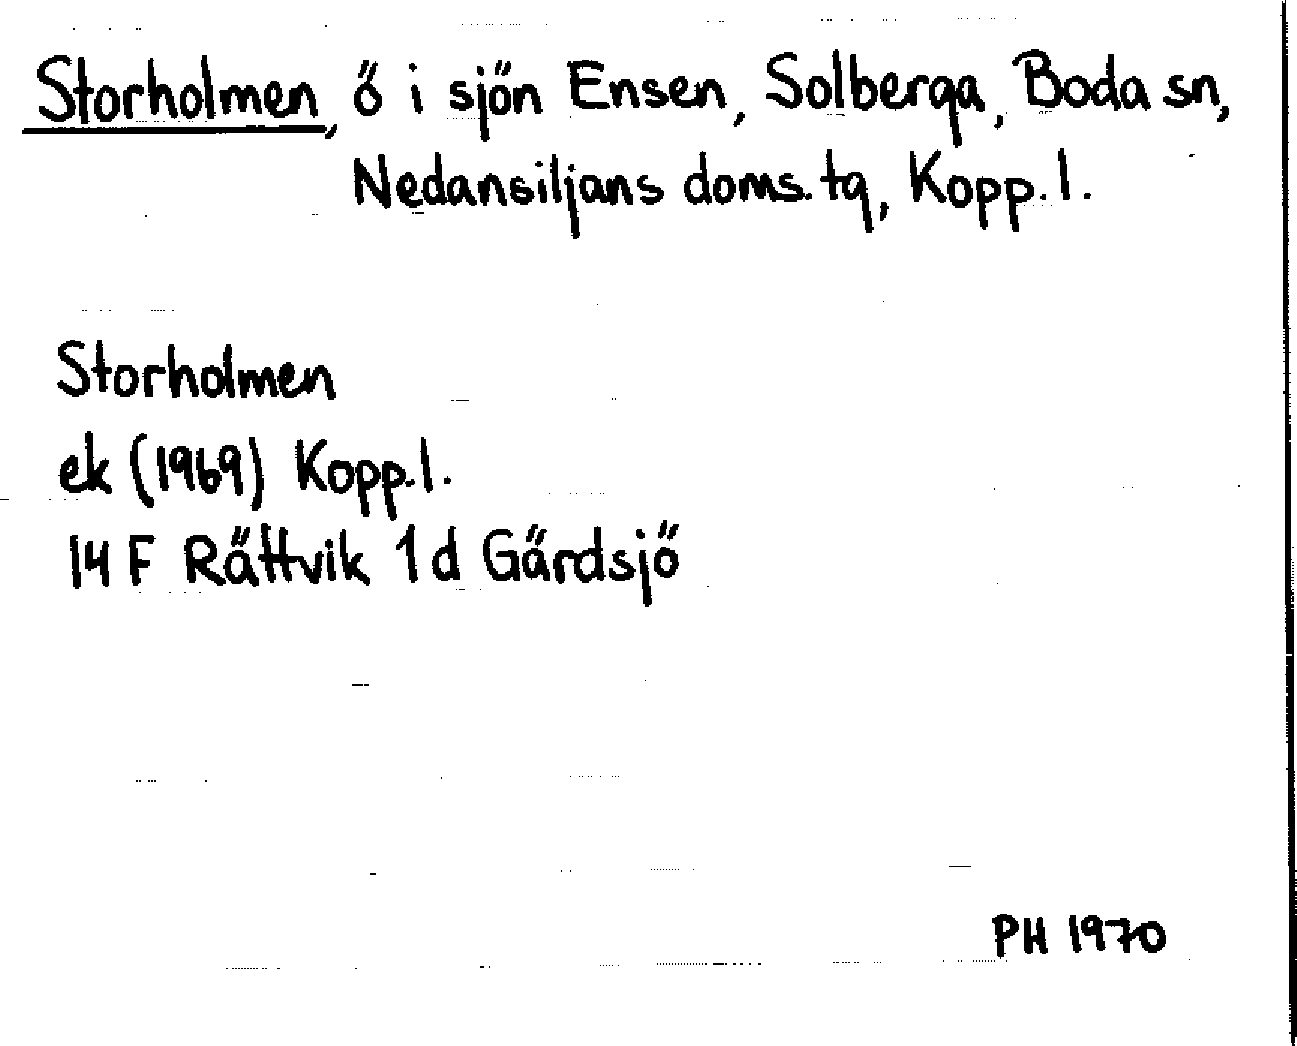 Storholmen, ö i sjön Ensen, Solberga, Boda sn,
Nedansiljans doms. tg, Kopp. l.
Storholmen
ek (1969) Kopp. l.
14 F Rättvik 1 d Gärdsjö
PH 1970